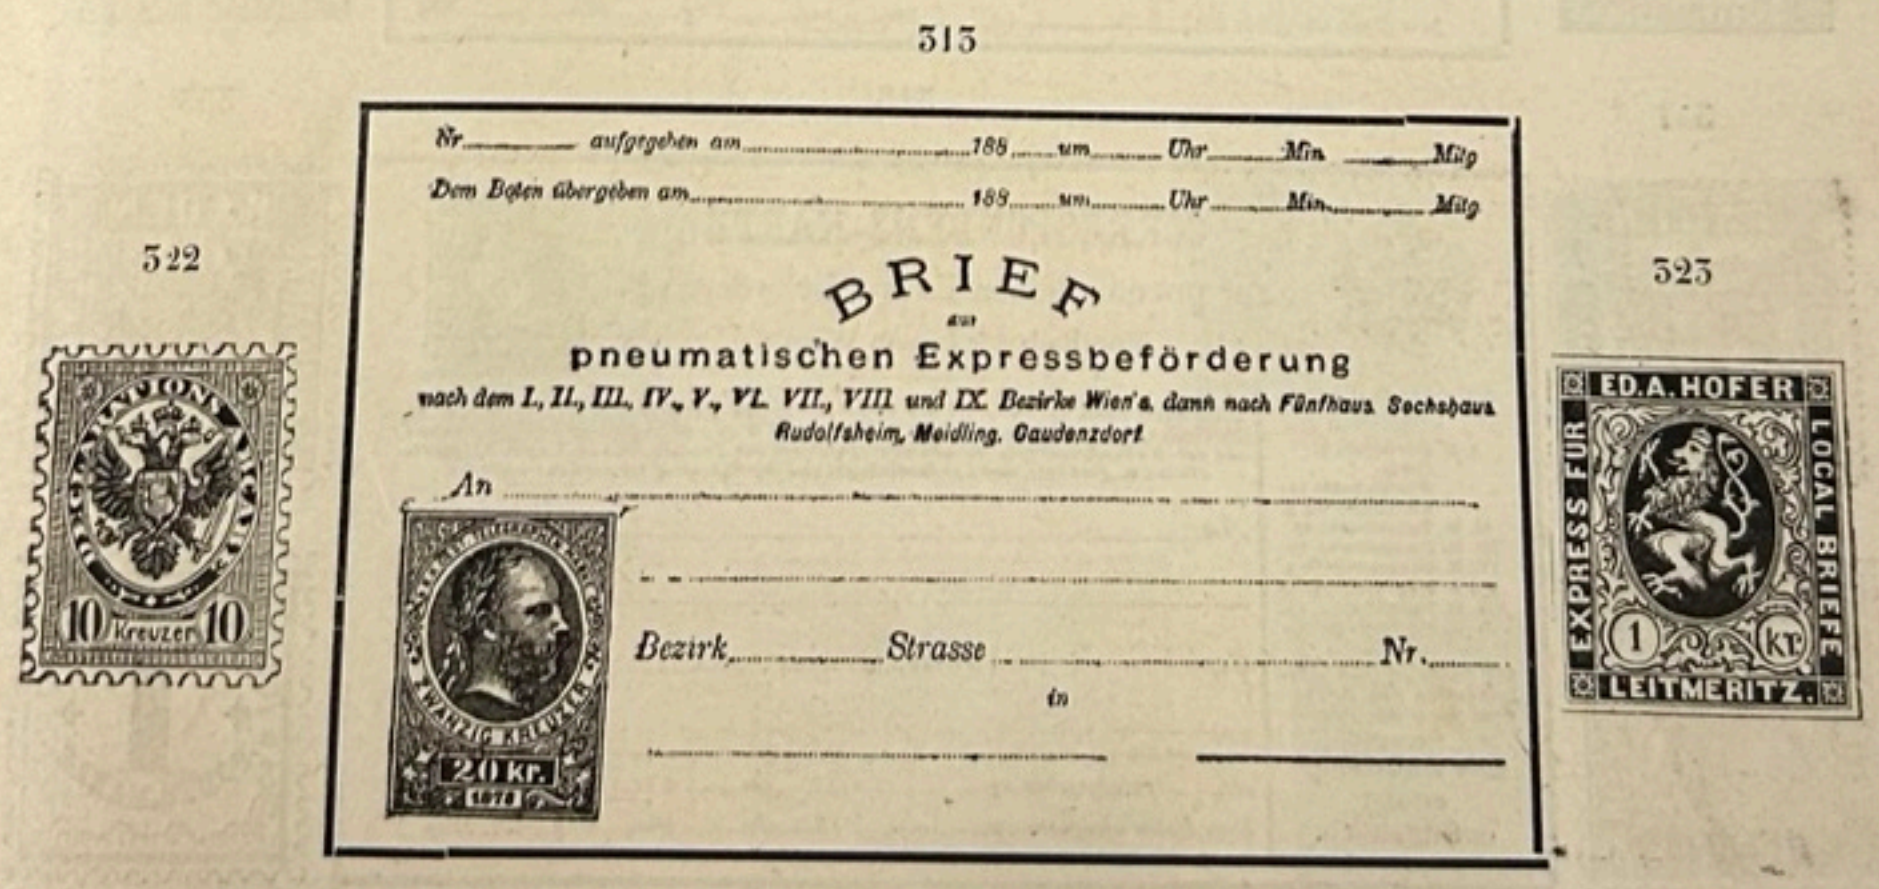 313
Nr. aufgegeben am 188 um Uhr Min Mitg
Dem Boten übergeben am 188 um Uhr Min. Mitg
BRIEF
zur
pneumatischen Expressbeförderung
nach dem I., II., III., IV., V., VI. VII., VIII. und IX. Bezirke Wien's, dann nach Fünfhaus Sechshaus
Rudolfsheim, Meidling, Gaudenzdorf
An
ZWANZIG KREUZER
20 kr.
Bezirk Strasse Nr.
in
322
10 Kreuzer 10
323
ED.A.HOFER
EXPRESS FÜR
LOCAL BRIEFE
1 kr.
LEITMERITZ.